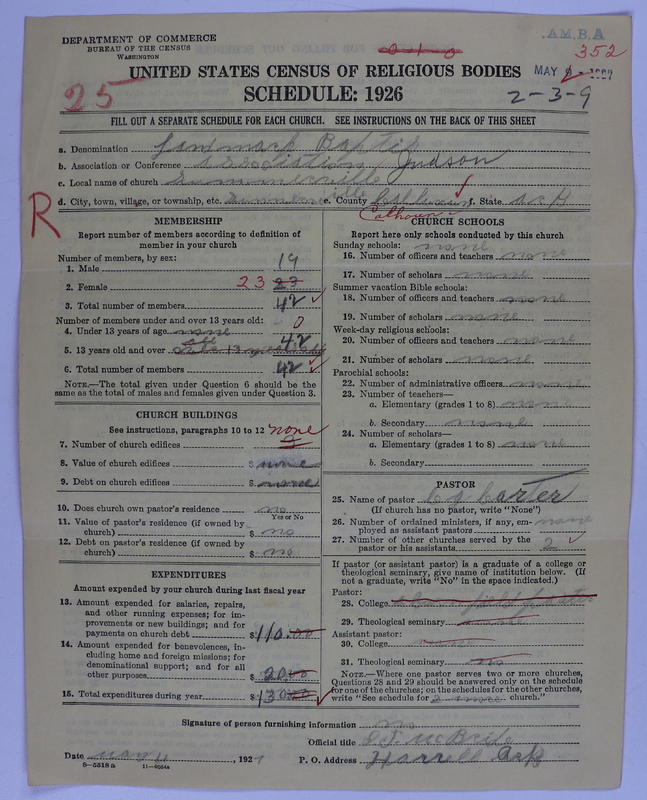 DEPARTMENT OF COMMERCE
BUREAU OF THE CENSUS
WASHINGTON
A.M.B.A
352
UNITED STATES CENSUS OF RELIGIOUS BODIES
MAY 1927
25
SCHEDULE: 1926
2-3-9
FILL OUT A SEPARATE SCHEDULE FOR EACH CHURCH. SEE INSTRUCTIONS ON THE BACK OF THIS SHEET
a. Denomination Landmark Baptis
b. Association or Conference Association Judson
c. Local name of church Summerville
d. City, town, village, or township, etc. e. County Calhoun f. State Ark
R
MEMBERSHIP
Report number of members according to definition of
member in your church
Number of members, by sex:
1. Male 19
2. Female 23 23
3. Total number of members 42
Number of members under and over 13 years old:
4. Under 13 years of age none 0
5. 13 years old and over all 42
6. Total number of members 42
NOTE.—The total given under Question 6 should be
same as the total of males and females given under Question 3.
CHURCH BUILDINGS
See instructions, paragraphs 10 to 12 none
7. Number of church edifices
8. Value of church edifices $ none
9. Debt on church edifices $ none
10. Does church own pastor's residence no
Yes or No
11. Value of pastor's residence (if owned by
church) $ no
12. Debt on pastor's residence (if owned by
church) $ no
EXPENDITURES
Amount expended by your church during last fiscal year
13. Amount expended for salaries, repairs,
and other running expenses; for im-
provements or new buildings; and for
payments on church debt $ 110.00
14. Amount expended for benevolences, in-
cluding home and foreign missions; for
denominational support; and for all
other purposes $ 20.00
15. Total expenditures during year $ 130.00
CHURCH SCHOOLS
Report here only schools conducted by this church
Sunday schools: none
16. Number of officers and teachers none
17. Number of scholars none
Summer vacation Bible schools:
18. Number of officers and teachers none
19. Number of scholars none
Week-day religious schools:
20. Number of officers and teachers none
21. Number of scholars none
Parochial schools:
22. Number of administrative officers none
23. Number of teachers—
a. Elementary (grades 1 to 8) none
b. Secondary none
24. Number of scholars—
a. Elementary (grades 1 to 8) none
b. Secondary
PASTOR
25. Name of pastor Carter
(If church has no pastor, write "None")
26. Number of ordained ministers, if any, em-
ployed as assistant pastors none
27. Number of other churches served by the
pastor or his assistants 2
If pastor (or assistant pastor) is a graduate of a college or
theological seminary, give name of institution below. (If
not a graduate, write "No" in the space indicated.)
Pastor:
28. College
29. Theological seminary
Assistant pastor:
30. College
31. Theological seminary no
NOTE.—Where one pastor serves two or more churches,
Questions 28 and 29 should be answered only on the schedule
for one of the churches; on the schedules for the other churches,
write "See schedule for church."
Signature of person furnishing information
Official title McBride
Date May 11, 1927
P. O. Address Harrell Ark
8—5518 a